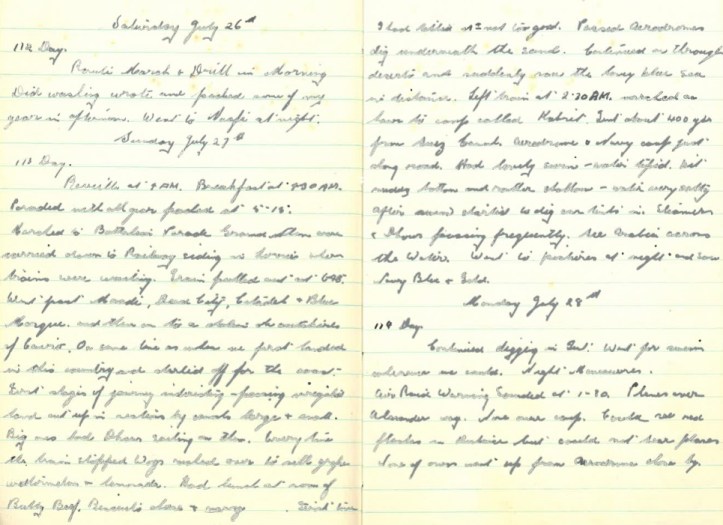 Saturday July 26th
112 Day.
Route March & Drill in Morning
Did washing wrote and packed some of my
gear in afternoon. Went to Naafi at night.
Sunday July 27th
113 Day.
Reveille at 4 AM. Breakfast at 4.30 AM.
Paraded with all gear packed at 5-15.
Marched to Battalion Parade Ground then were
carried down to Railway siding in lorries where
trains were waiting. Train pulled out at
Went past Maadi, Dead City, Citadel & Blue
Mosque. and then on to a station the outskirts
of Cairo. On same line as when we first landed
in this country and started off for the coast.
First stages of journey interesting - passing irrigated
land cut up in sections by canals large & small.
Big ones had Dhows sailing on them. Every time
the train stopped Wogs rushed over to sell grapes
watermelons & lemonade. Had lunch at noon of
Bully Beef, Biscuits cheese & . First time
I had tasted it not too good. Passed Aerodromes
dug underneath the sand. Continued on through
deserts and suddenly saw the lovely blue sea
in distance. Left train at 2.30 AM. marched on
here to camp called Kabrit. Just about 400 yds
from Suez Canal. Aerodrome & Navy camp just
along road. Had lovely swim - water tepid. bit
muddy bottom and rather shallow - water very salty
After swim started to dig our tents in. Steamers
& Dhows passing frequently. See across
the Water. Went to pictures at night and saw
Navy Blue & Gold.
Monday July 28th
114 Day
Continued digging in Tent. Went for swim
whenever we could. Night Manouvres.
Air Raid Warning Sounded at 1-30. Planes over
Alexander way. None over camp. Could see red
flashes in distance but could not hear planes
Some of ours went up from aerodrome close by.